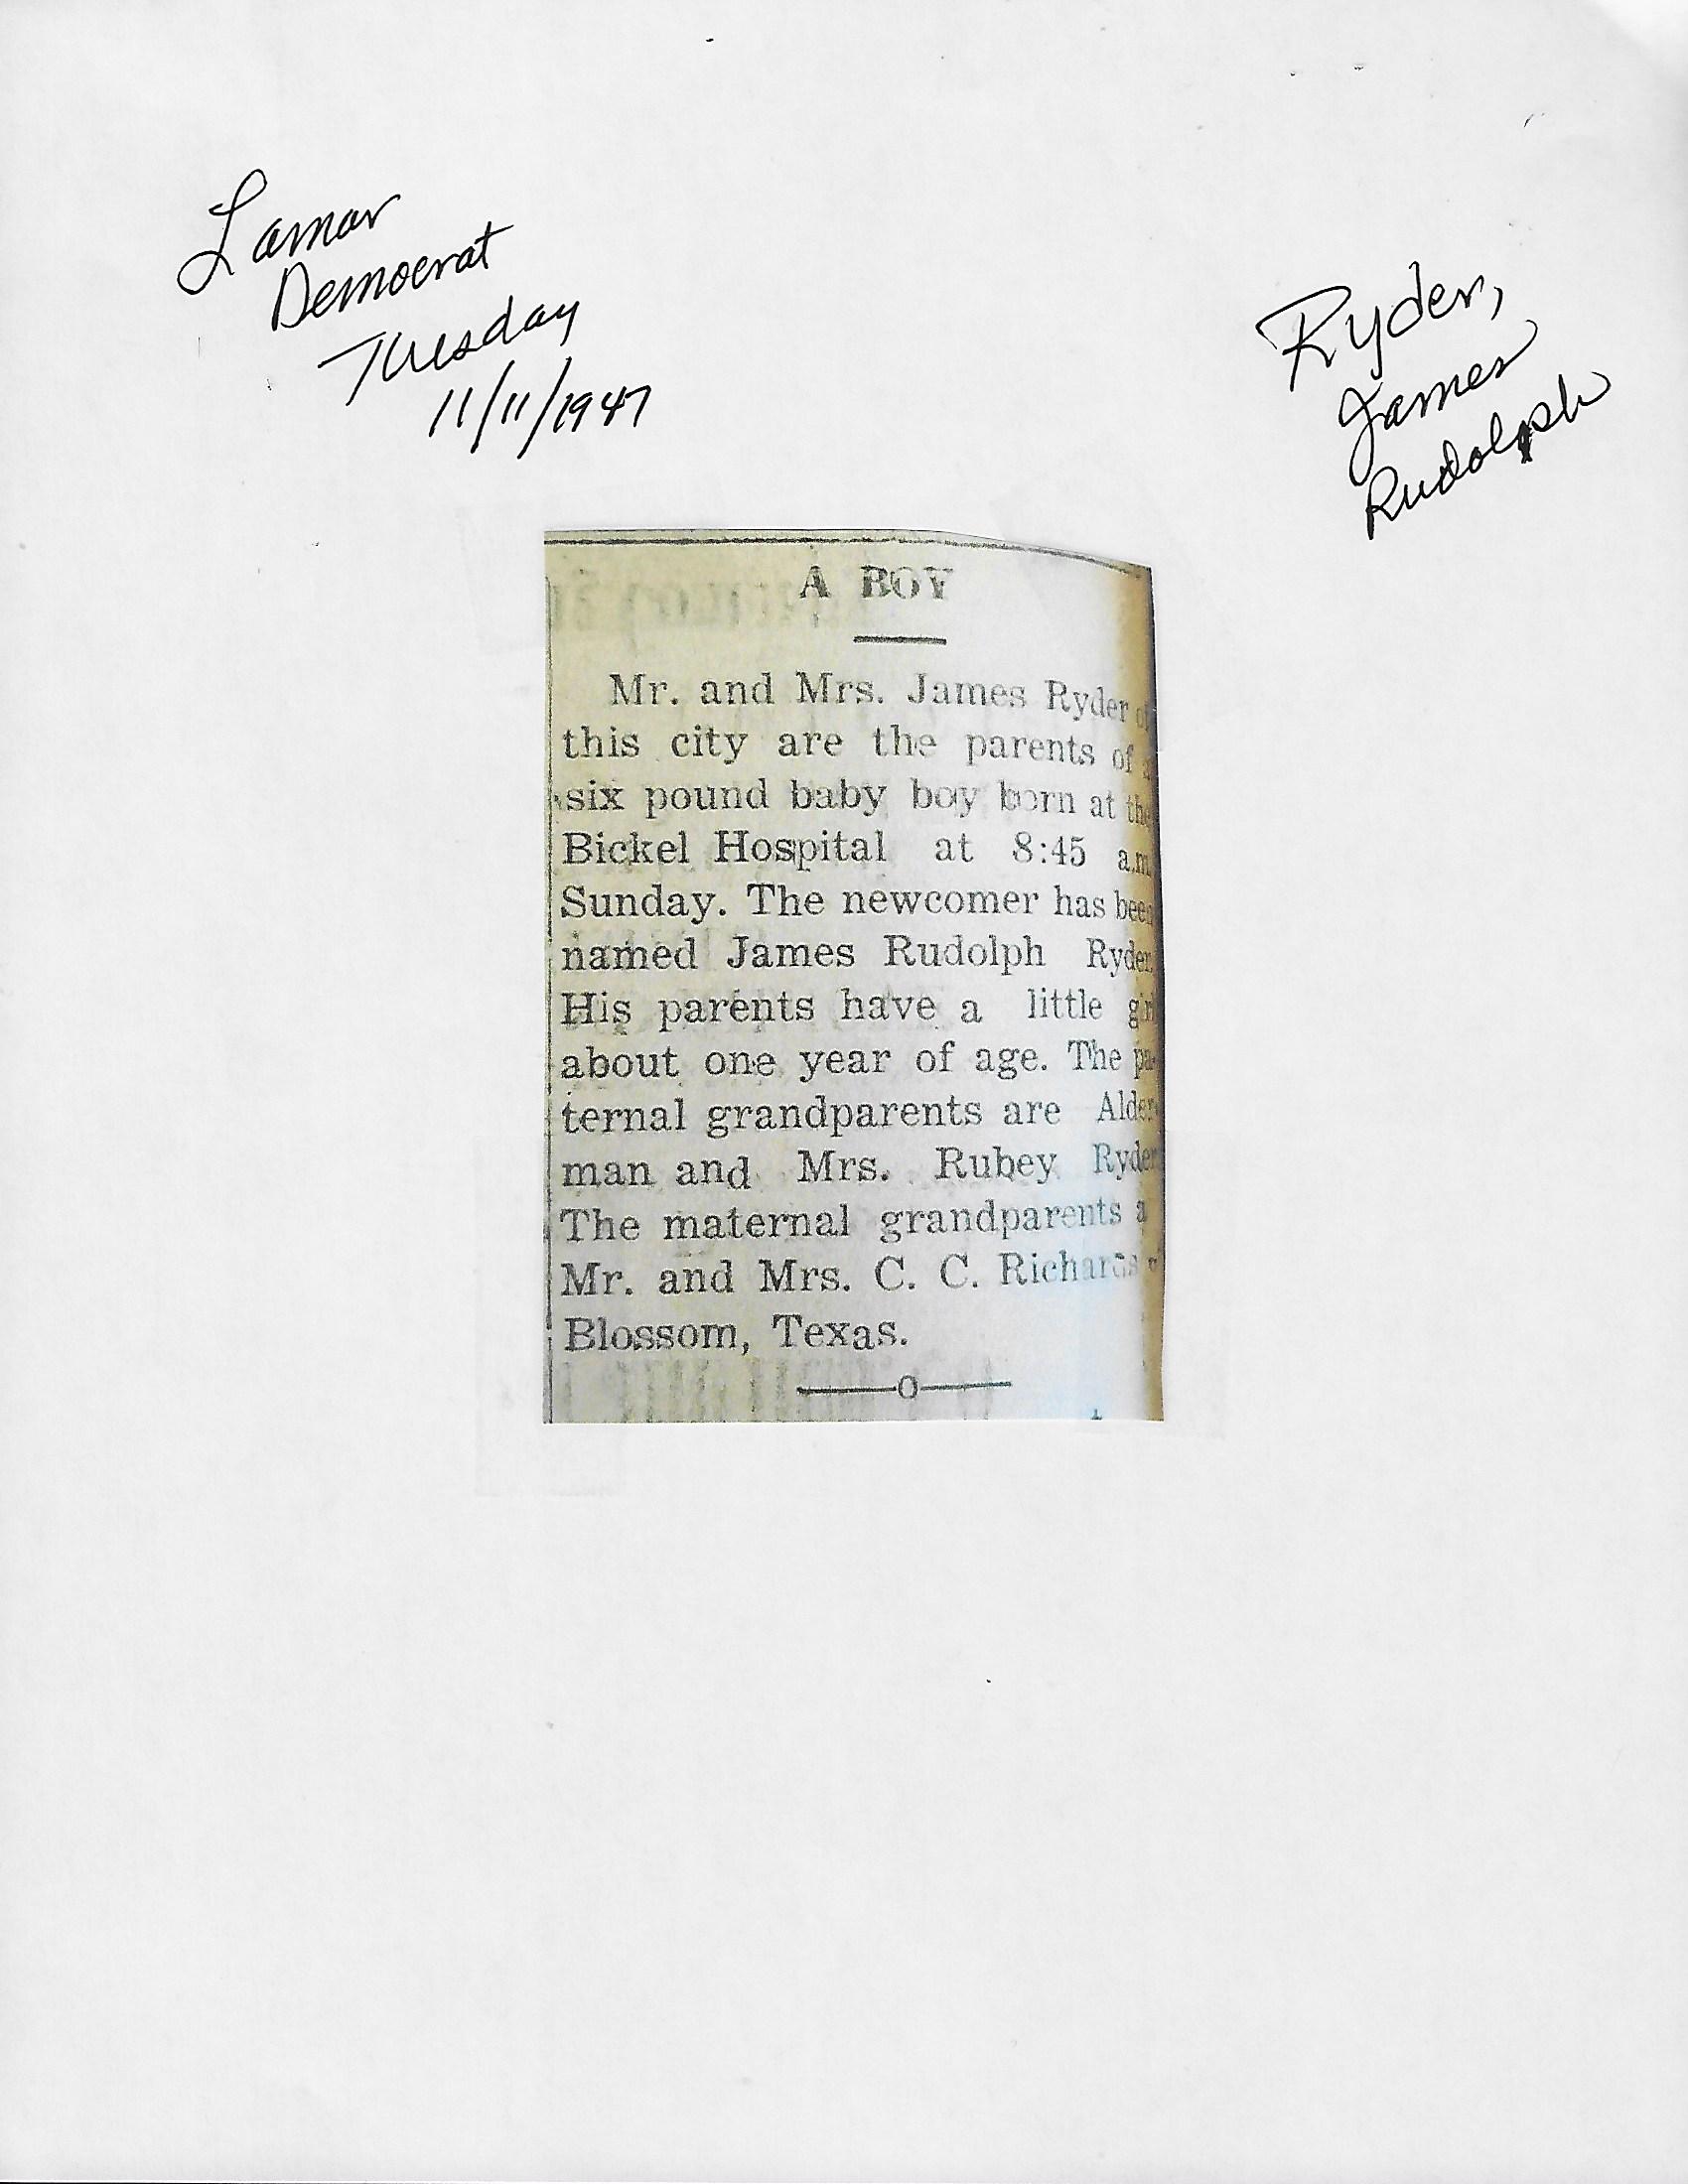 Lamar
Democrat
Tuesday
11/11/1947
Ryder,
James
Rudolph
A BOY
Mr. and Mrs. James Ryder of
this city are the parents of a
six pound baby boy born at the
Bickel Hospital at 8:45 a.m.
Sunday. The newcomer has been
named James Rudolph Ryder.
His parents have a little girl
about one year of age. The pa-
ternal grandparents are Alder-
man and Mrs. Rubey Ryder
The maternal grandparents
Mr. and Mrs. C. C. Richards
Blossom, Texas.
o